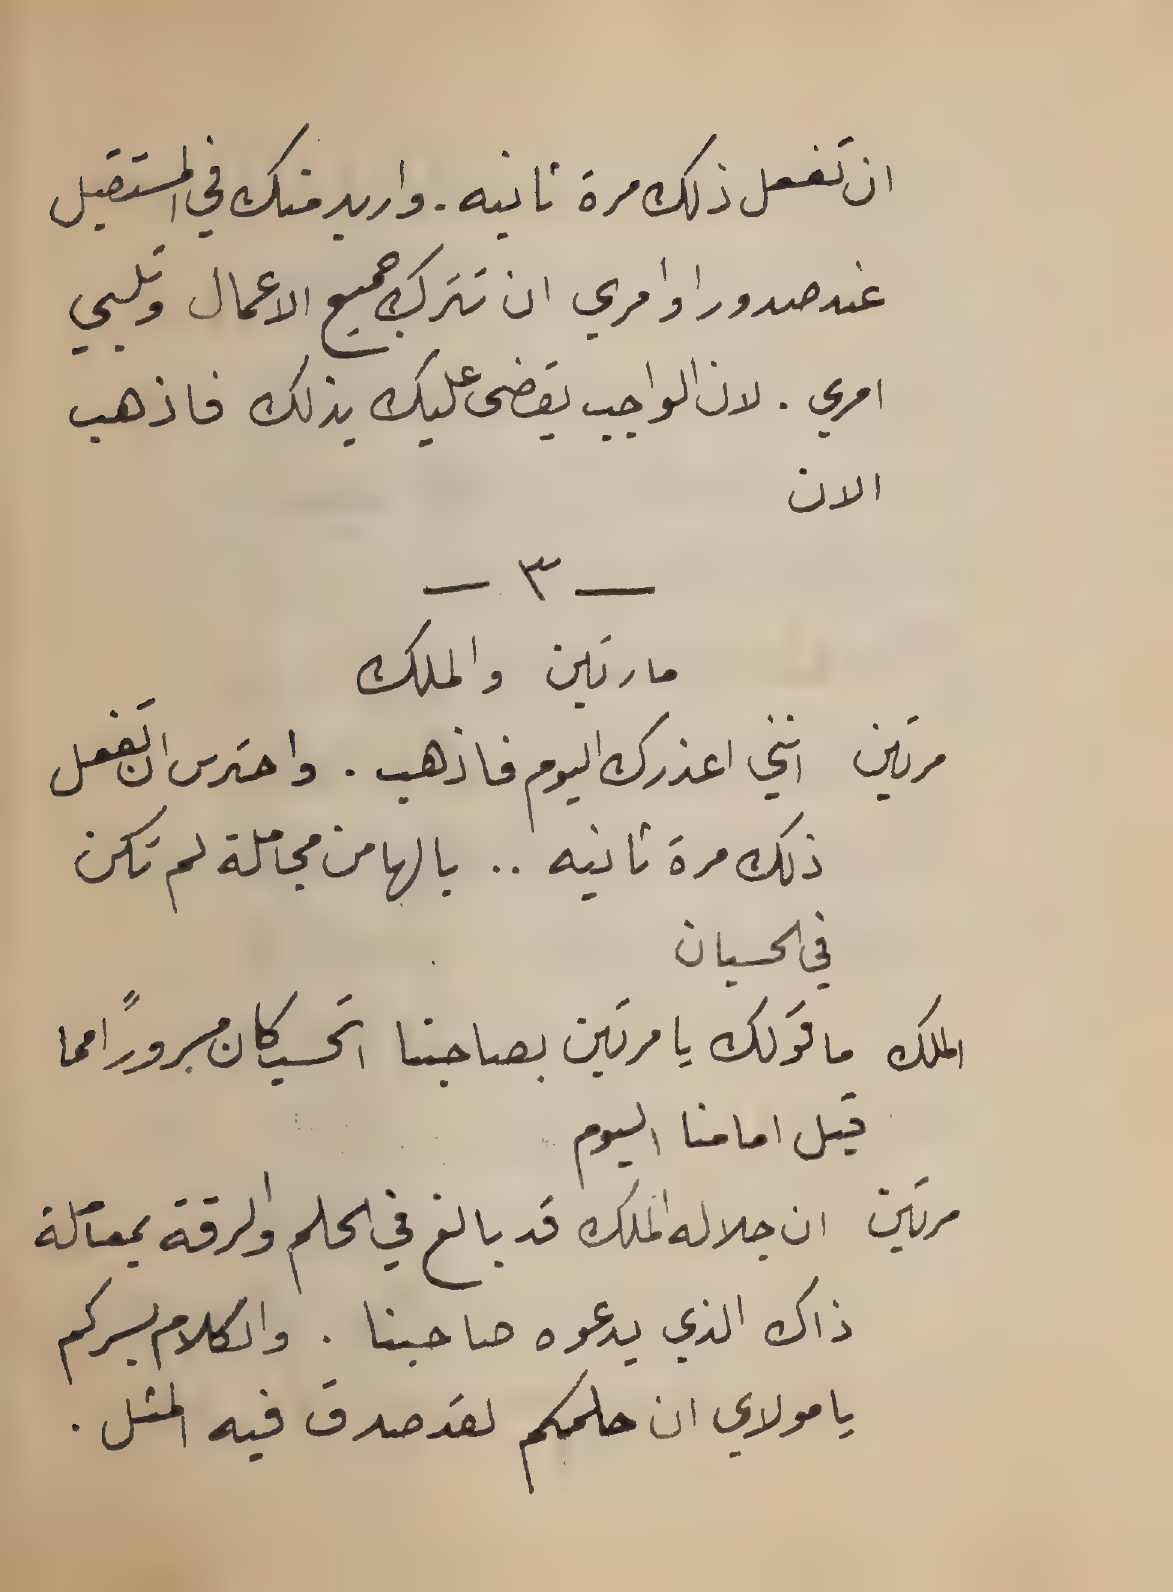 ان تفعل ذلك مرة ثانيه . واريد منك في المستقبل
عند صدور اوامري ان تترك جميع الاعمال وتلبي
امري . لان الواجب يقضى عليك بذلك فاذهب
الان
— ٣ —
مارتين والملك
مرتين انني اعذرك اليوم فاذهب . واحترس ان تفعل
ذلك مرة ثانيه .. يالها من مجاملة لم تكن
في الحسبان
الملك ما قولك يا مرتين بصاحبنا اتحسبه كان مسروراً مما
قيل امامنا اليوم
مرتين ان جلاله الملك قد بالغ في الحلم والرقة بمعاملة
ذاك الذي يدعوه صاحبنا . والكلام بسركم
يا مولاي ان حلمكم لقد صدق فيه المثل .